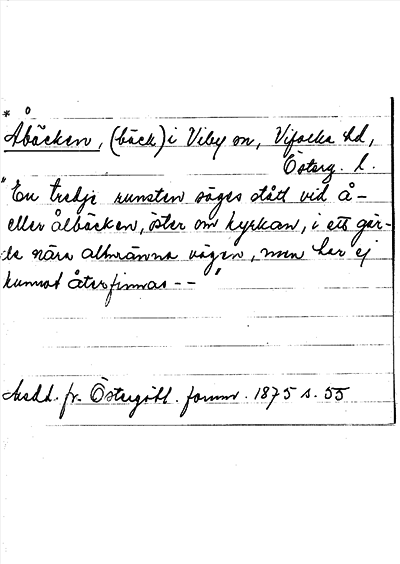 * Åbäcken, (bäck) i Viby sn, Vifolka hd,
Österg. l.
"En tredje runsten säges stått vid å-
eller ålbäcken, öster om kyrkan, i ett gär-
de nära allmänna vägen, men har ej
kunnat återfinnas -- "
Medd. fr. Östergötl. fornm. 1875 s. 55